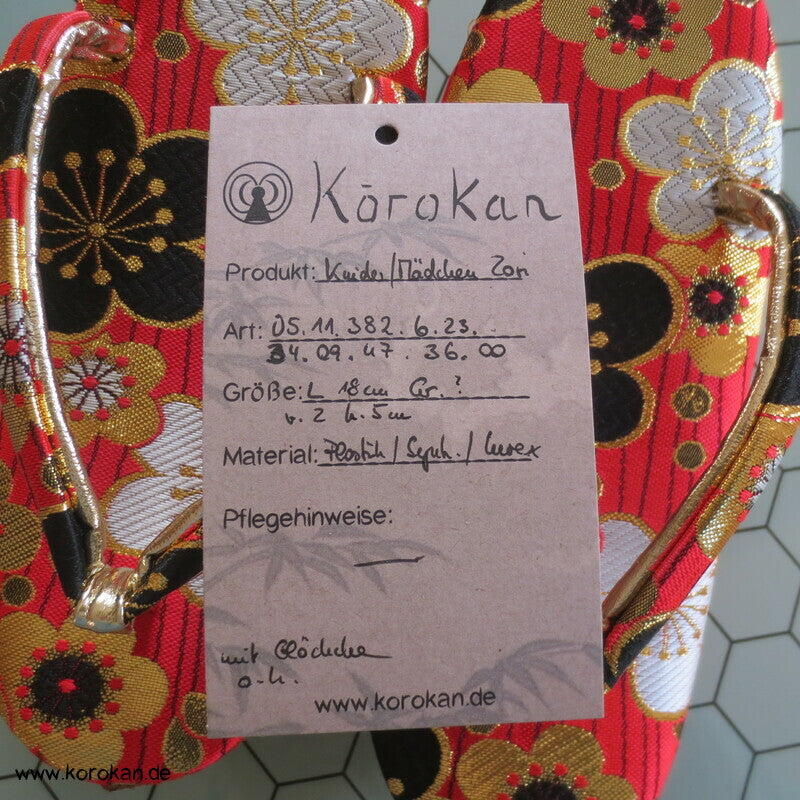 Kōrokan
Produkt: Kinder/Mädchen Zori
Art: 05.11.382.6.23.
34.09.47.36.00
Größe: L 18cm Gr. ?
v. 2 h. 5cm
Material: Plastik/Synth./Lurex
Pflegehinweise:
mit Glöckchen
www.korokan.de
www.korokan.de